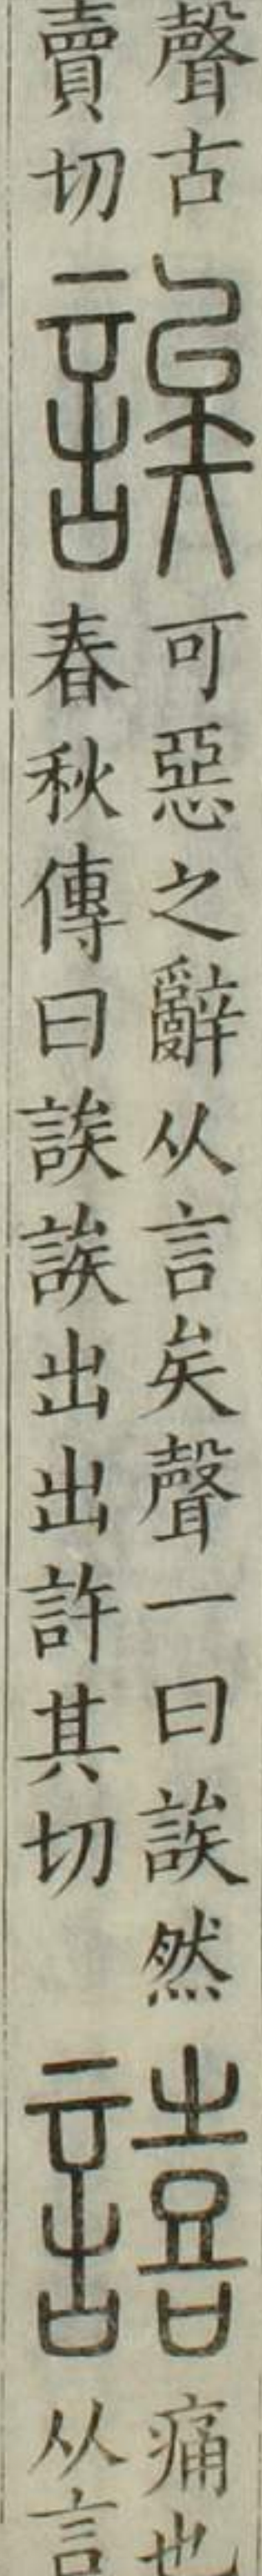 聲古
賣切
誒
可惡之辭从言矣聲一曰誒然
春秋傳曰誒誒出出許其切
譆
痛也
从言